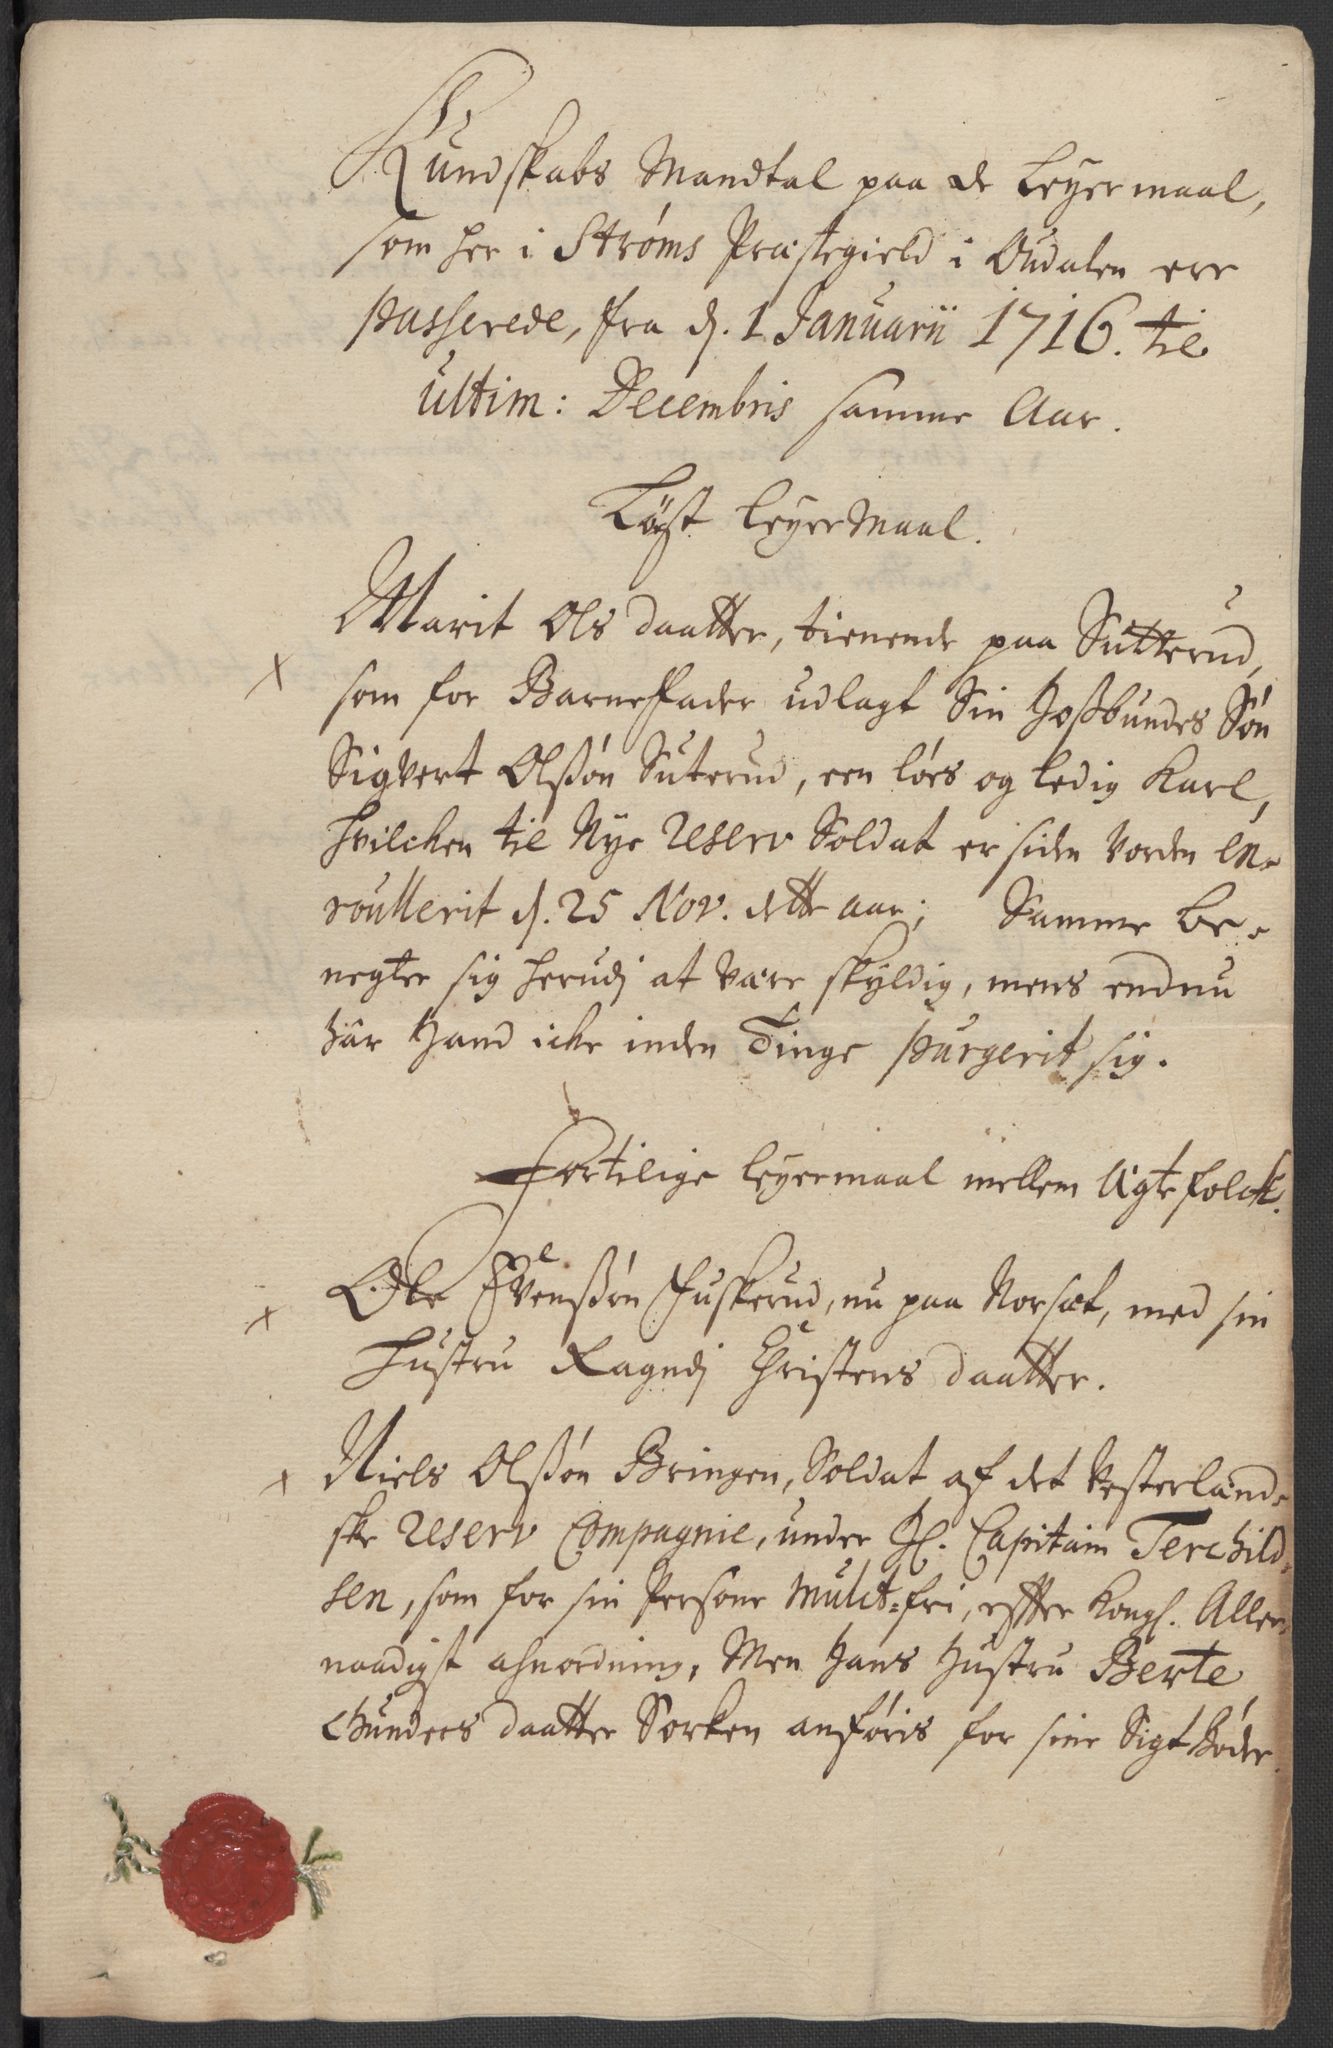 Kundskabs Mandtal paa de Leyermaal,
som her i Strøms Præstegield i Oudalen ere
Passerede, fra d. 1 Januarii 1716. til
ultim: Decembris samme Aar.
Løst LeyerMaal.
x Marit Ols daatter, tienende paa Sutterud,
som for BarneFader udlagt Sin Hoßbundes Søn
Sigvert Olßøn Suterud, een løes og ledig Karl,
hvilchen til Nye Reserv Soldat er siden vorden en-
roullerit d. 25 Nov. dette aar; Samme be-
negter sig herudj at være skyldig, mens endnu
har Hand icke inden Tinge Purgerit sig.
For tilige Leyermaal mellem Ægtefolck.
x Ole Evenßøn Fuskerud, nu paa Norsæt, med sin
Hustru Ragndj Christens daatter.
x Niels Olßøn Bringen, Soldat af det Vesterland-
ske Reserv Compagnie, under H. Capitain Terchild-
sen, som for sin Persone Mulct-fri, efter Kongl. Aller-
naadigst anordning, Men Hans Hustru Berte
Gunders daatter Sorken anføris for sine Sigt Bøder.